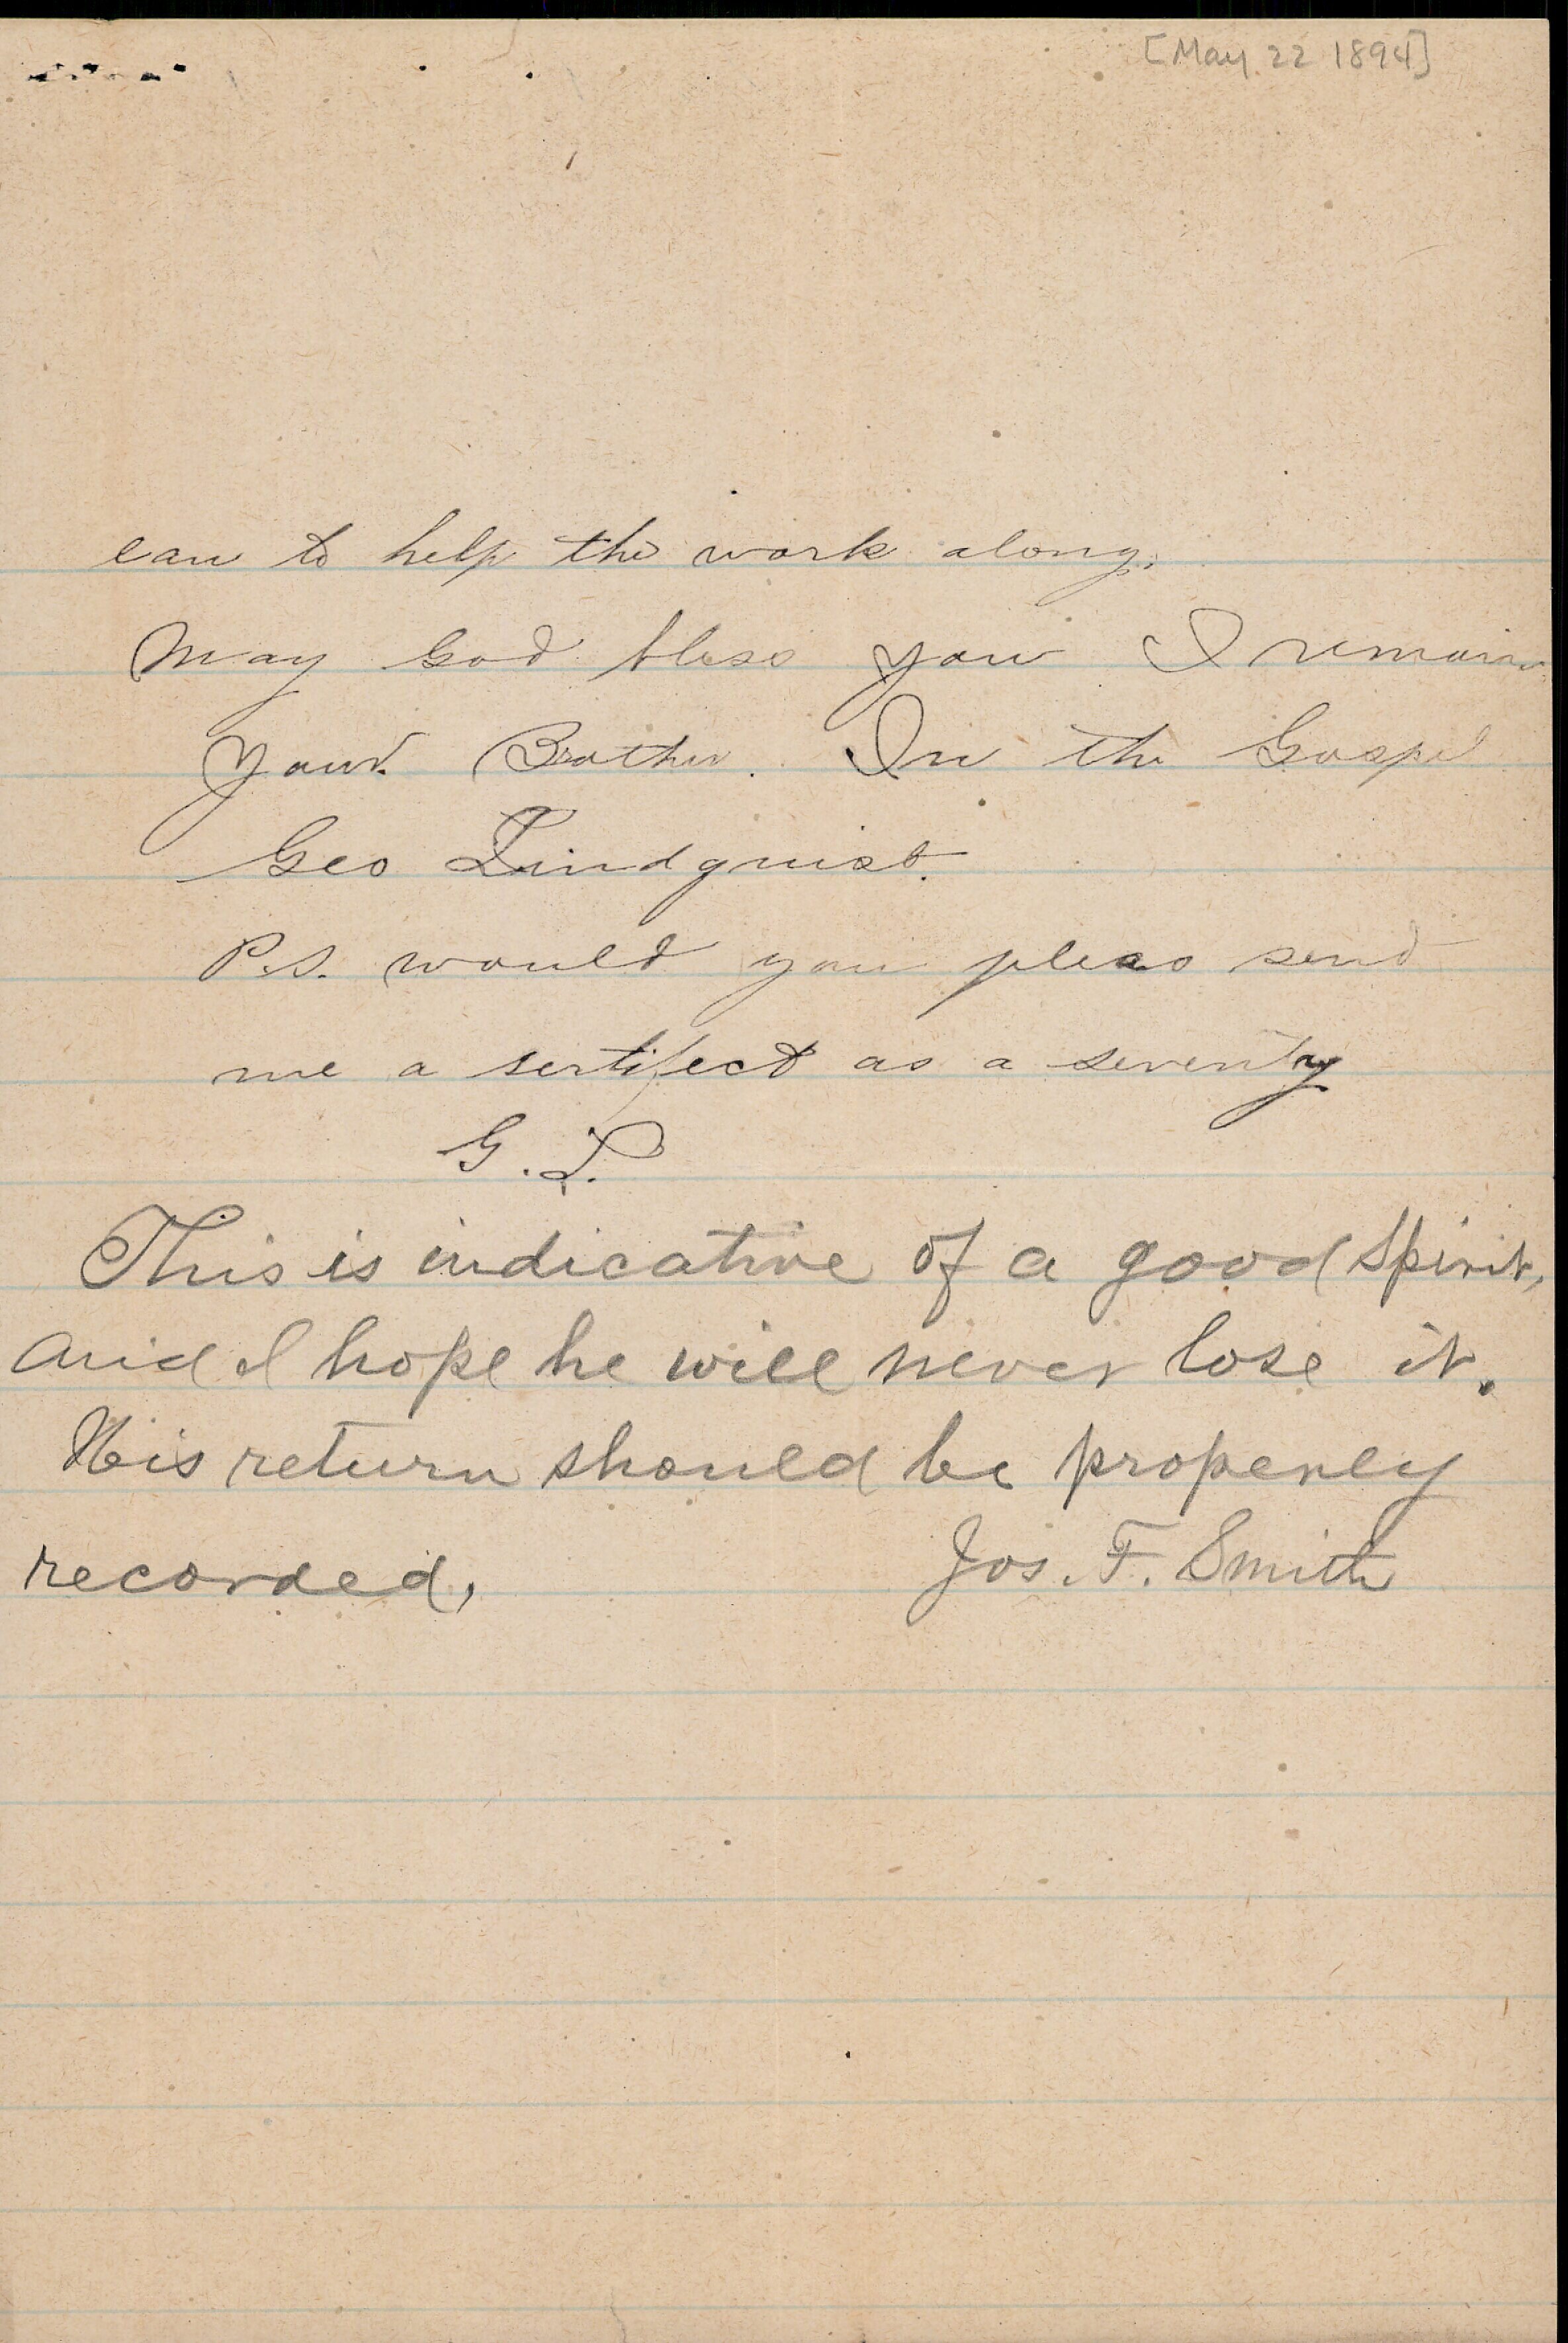 [May 22 1894]
can to help the work along.
May God bless you I remain
Your Brother. In the Gospel
Geo Lindquist.
P.S. would you pleas send
me a sertifect as a seventy
G. L.
This is indicative of a good spirit,
and I hope he will never lose it.
His return should be properly
recorded, Jos. F. Smith